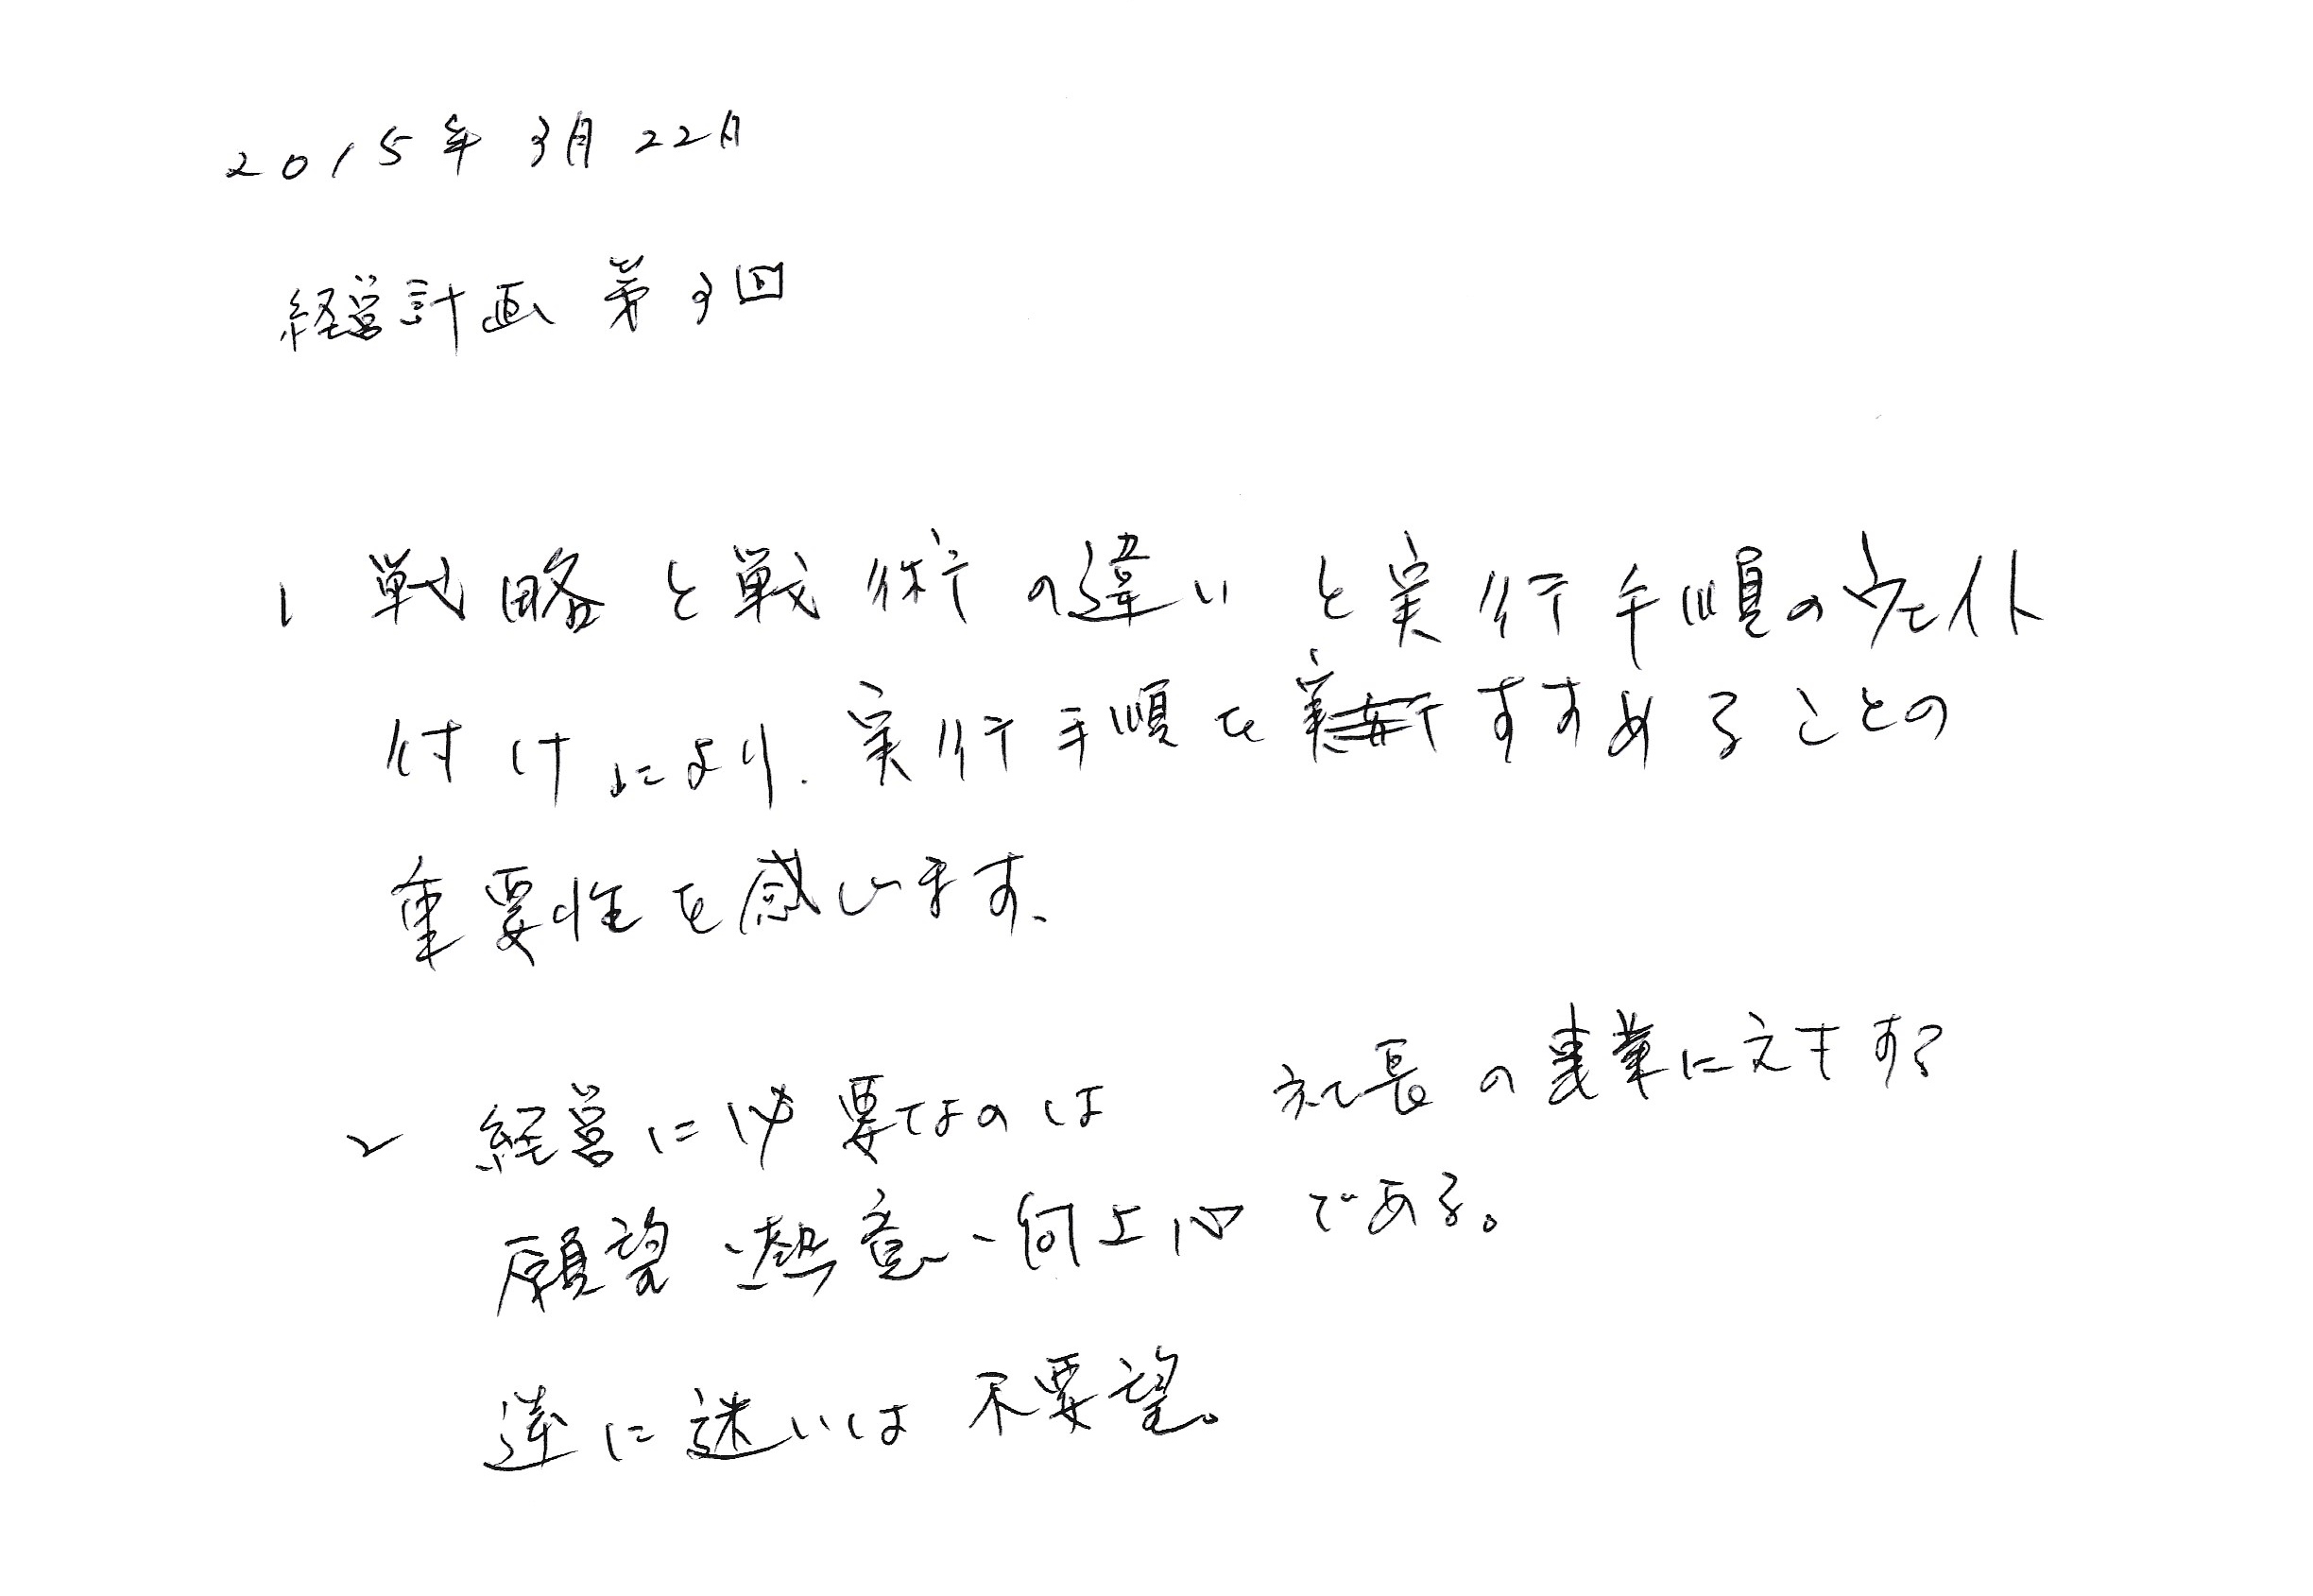 2015年3月22日
経営計画 第3回
1 戦略と戦術の違いと実行手順のウェイト
付けにより、実行手順をすすめることの
重要性を感じます、
2 経営に必要なのは 社長の事業に対する
願望、熱意、向上心である。
逆に迷いは不要望。